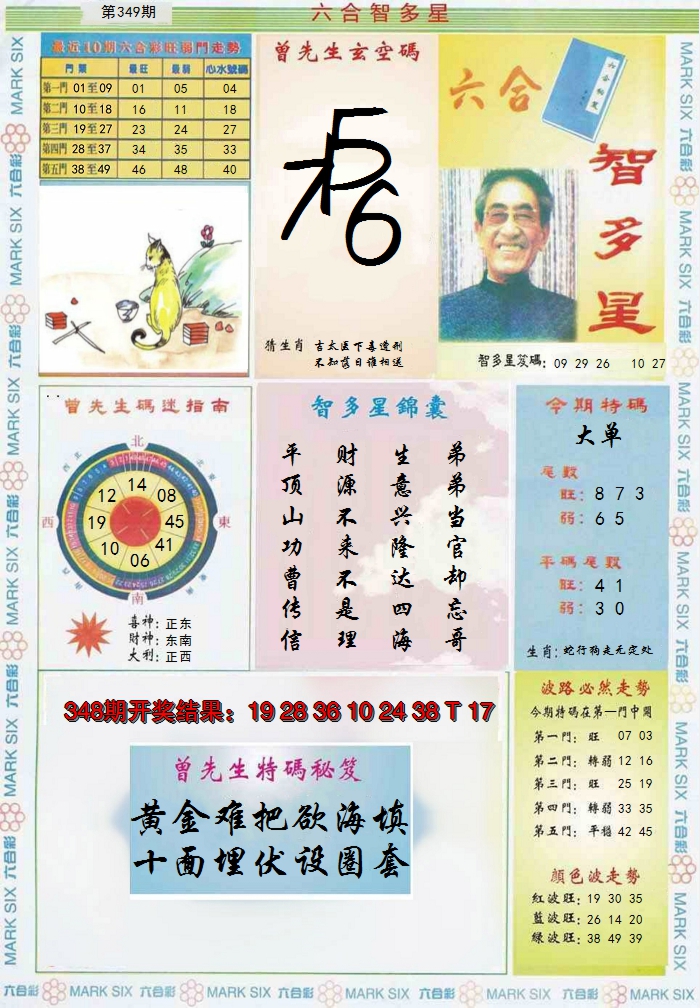 第349期
六合智多星
最近10期六合彩旺弱門走勢
門類 最旺 最弱 心水號碼
第一門 01至09 01 05 04
第二門 10至18 16 11 18
第三門 19至27 23 24 27
第四門 28至37 34 35 33
第五門 38至49 46 48 40
曾先生玄空碼
7 5 6
猜生肖 吉太医下毒遭刑
不知落日谁相送
六合
智多星
智多星笈碼: 09 29 26 10 27
曾先生碼迷指南
北
西北
東北
12 14 08
西 19 45 東
10 41
06
南
喜神: 正东
财神: 东南
大利: 正西
智多星錦囊
弟弟当官却忘哥
生意兴隆达四海
财源不来不是理
平顶山功曹传信
今期特碼
大单
尾数
旺: 8 7 3
弱: 6 5
平碼尾数
旺: 4 1
弱: 3 0
生肖: 蛇行狗走无定处
348期开奖结果: 19 28 36 10 24 38 T 17
曾先生特碼秘笈
黄金难把欲海填
十面埋伏设圈套
波路必然走勢
今期特碼在第一門中開
第一門: 旺 07 03
第二門: 轉弱 12 16
第三門: 旺 25 19
第四門: 轉弱 33 35
第五門: 平穩 42 45
顏色波走勢
紅波旺: 19 30 35
藍波旺: 26 14 20
綠波旺: 38 49 39
MARK SIX 六合彩